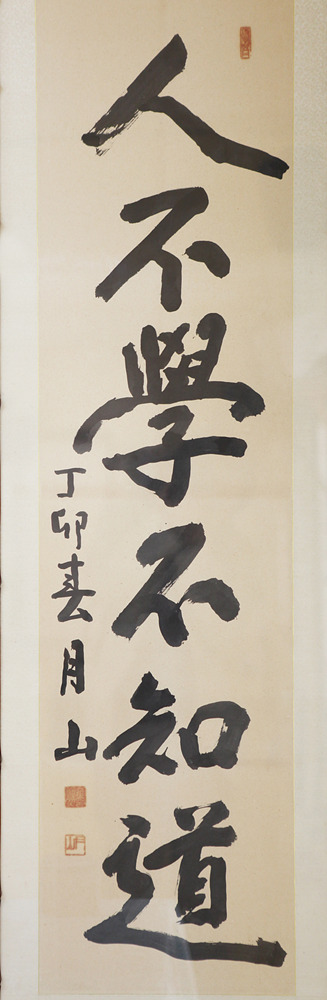 人不學不知道
丁卯春月山